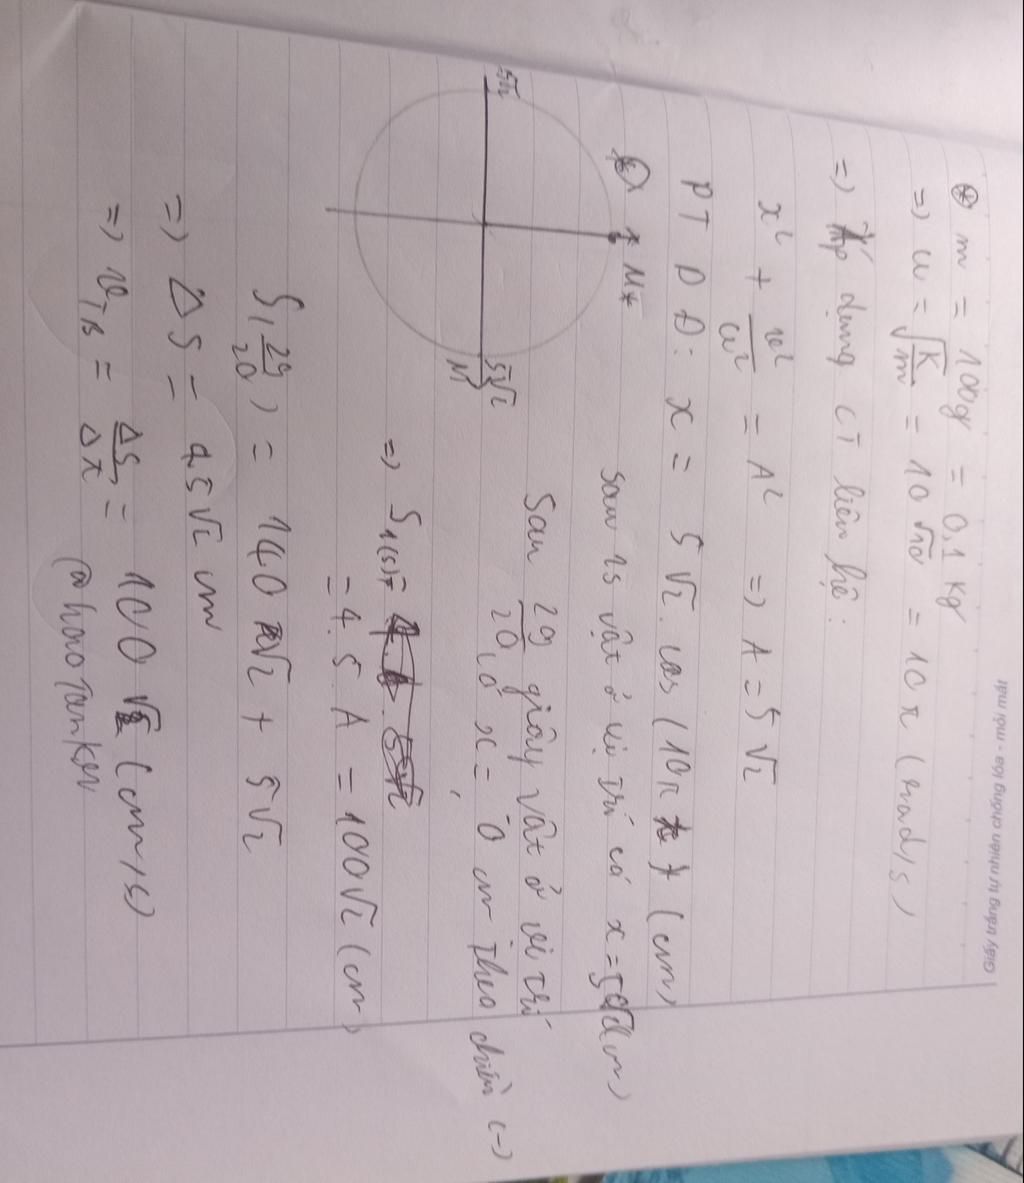 Giấy trắng tự nhiên chống lóa - mỏi mắt
⊛ m = 100g = 0,1 kg
=) ω = √(k/m) = 10√10 = 10π (rad/s)
=) Áp dụng CT liên hệ:
x² + v²/ω² = A² =) A = 5√2
PT D Đ: x = 5√2. cos (10πt) (cm)
M*
sau 1s vật ở vị trí có x = 5√2 (cm)
Sau 29/20 giây vật ở vị trí
có x = 0 cm theo chiều (-)
5√2
M
=) S1(s) =
= 4. 5 A = 100√2 (cm)
S(29/20) = 140√2 + 5√2
=) ΔS = 45√2 cm
=) vTB = ΔS/Δt = 100√2 (cm/s)
@haotanker